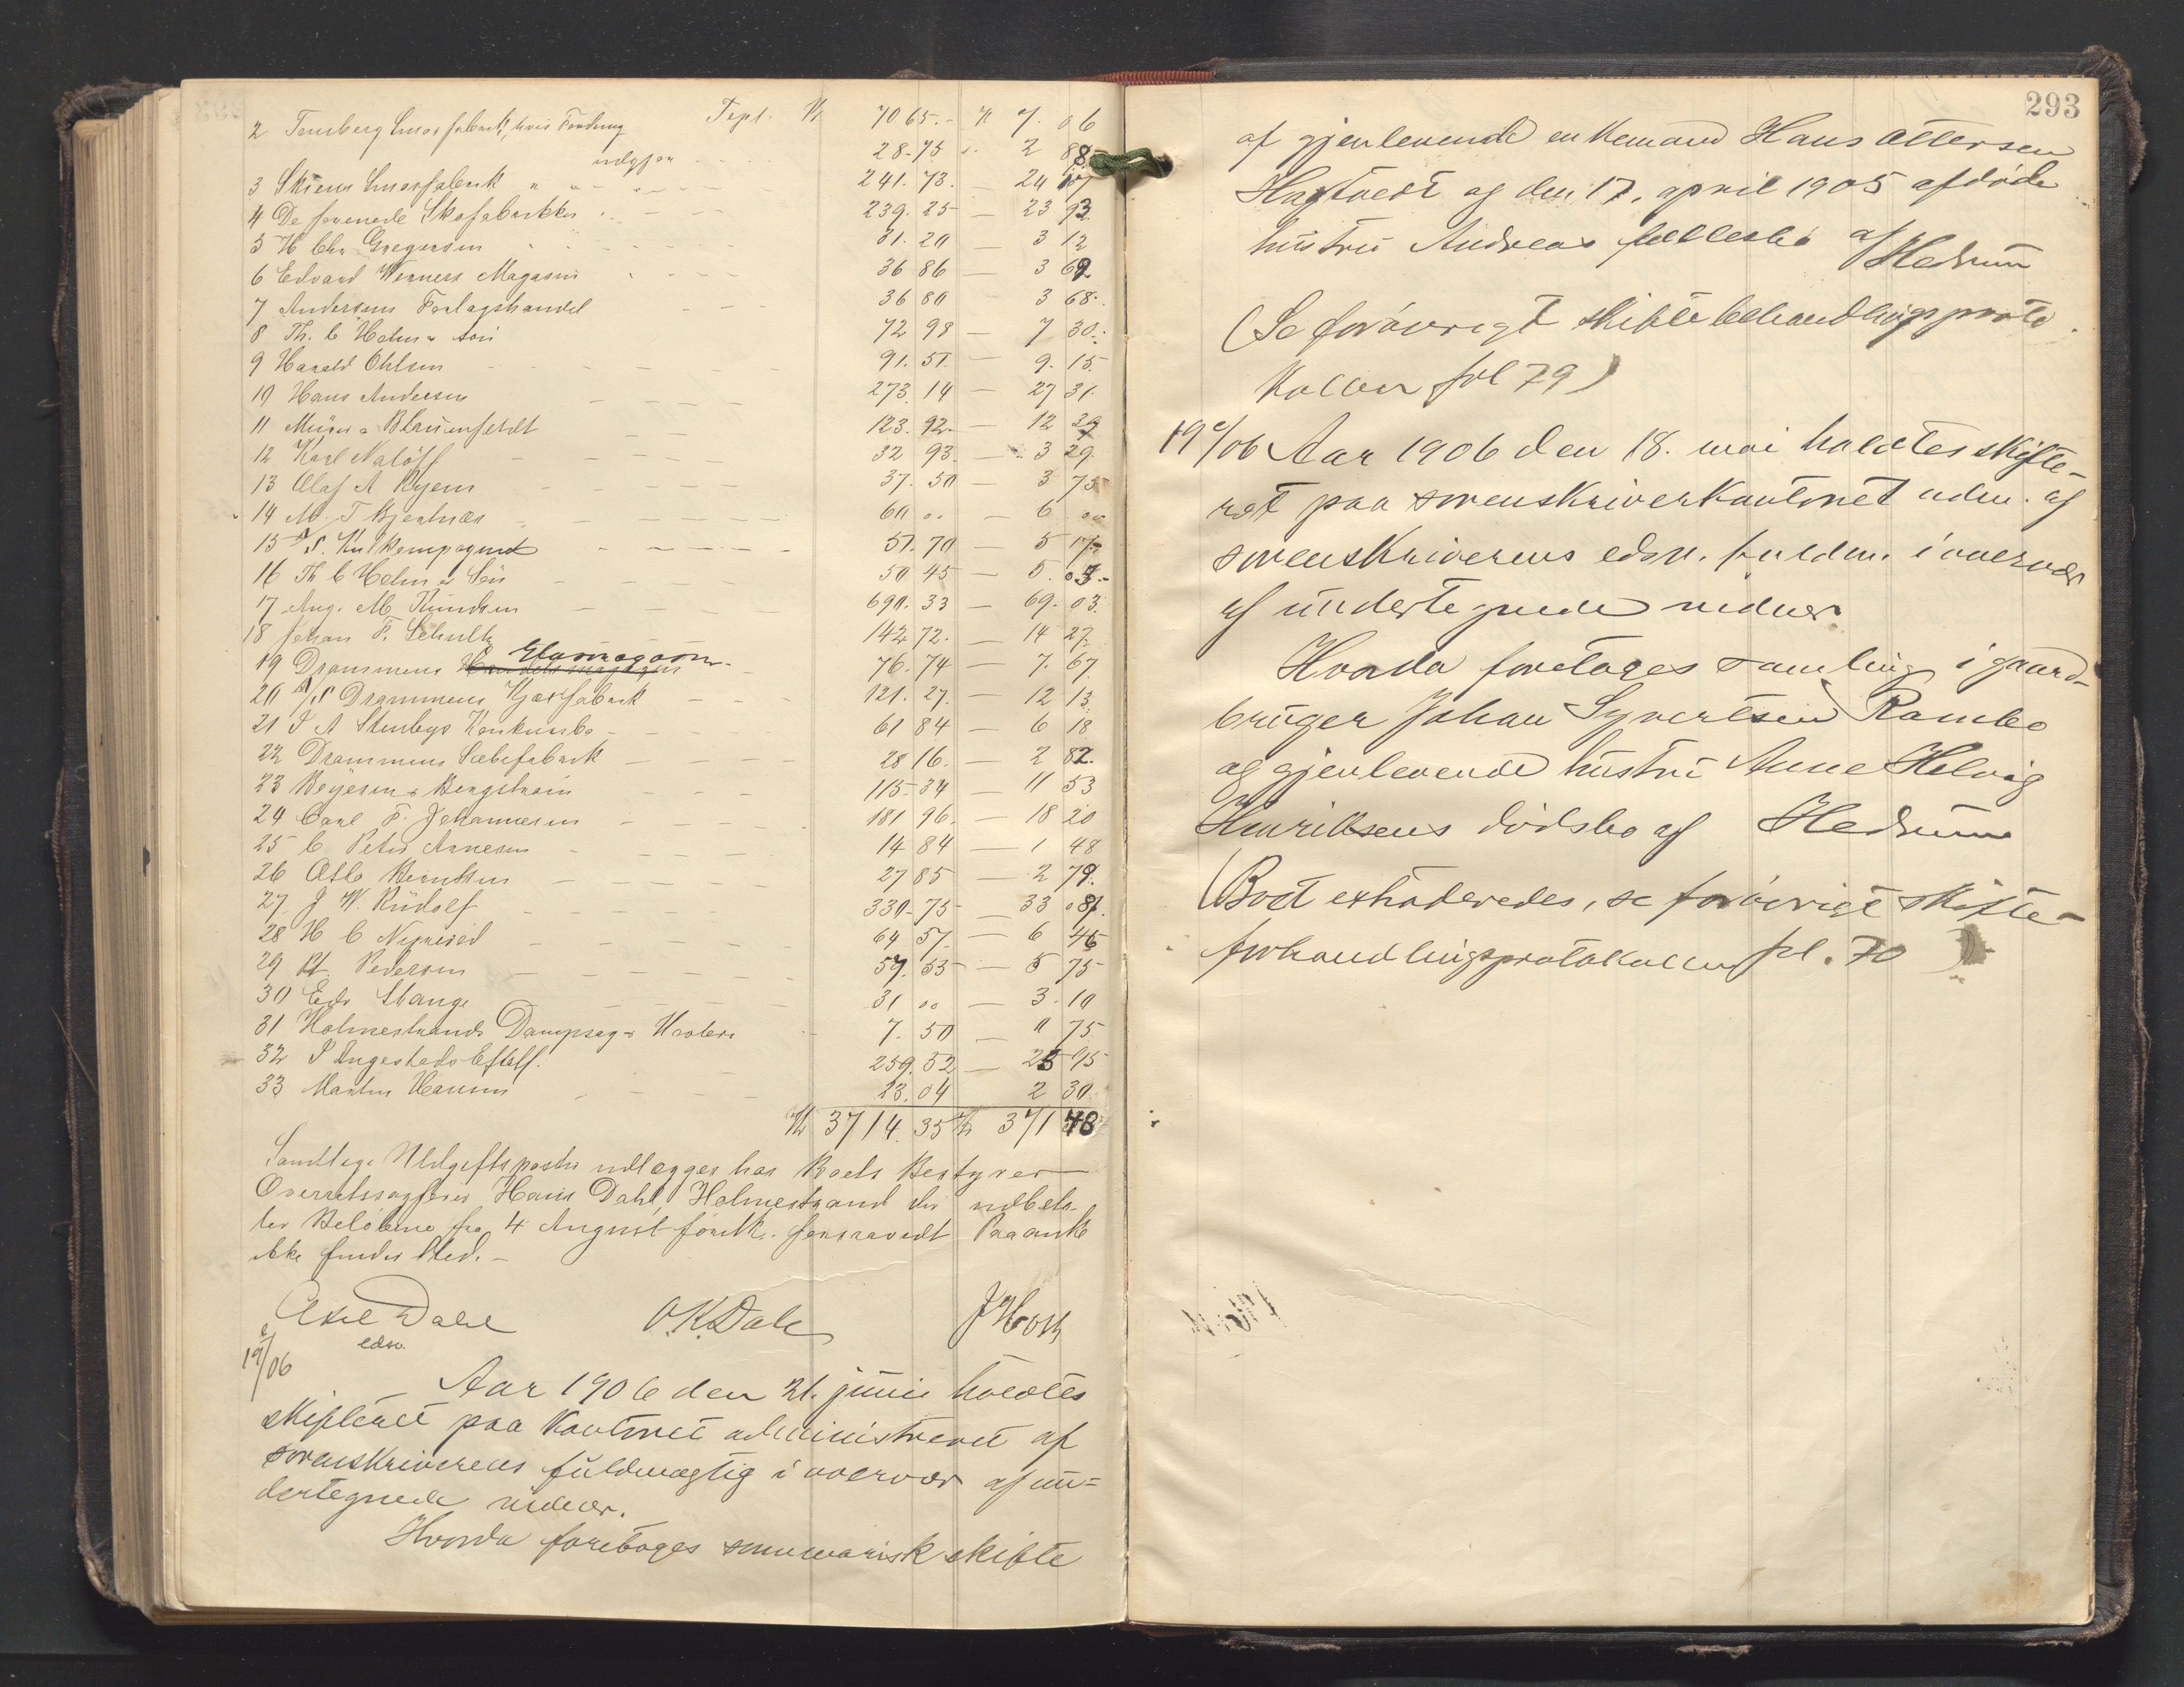 Tspt. Kr 70 65. - Kr 7. 06
2 Tønsberg Smørfabrik, hvis Fordring
udgjør 28-75 2 88
3 Skiens Smørfabrik 241. 73. 24 17
4 De forenede Skofabrikker 239. 25 - 23 93
5 H Chr Gregersen 31. 20 - 3 12
6 Edvard Werners Magasin 36 86 - 3 69
7 Andersens Forlagshandel 36 80 3 68.
8 Th. C Holm & Søn 72 98 - 7 30.
9 Harald Ohlsen 91. 51. - 9. 15.
10 Hans Andersen 273. 14 - 27 31.
11 Blumenfeldt 123. 92. - 12 39
12 Karl 32 93. - 3 29.
13 Olaf A Ryen 37. 50 - 3 75
14 M. T 60 00 - 6 00
15 A/S. Kulkompagniet 51. 70 - 5 17
16 Th C Holm & Søn 50 45 - 5. 05.
17 Aug. M Knudsen 690. 33 - 69. 03.
18 Johan F. Schultz 142 72. - 14 27.
19 Drammens Glasmagasin 76. 74 7. 67
20 A/S Drammens Kjæxfabrik 121. 27. - 12 13.
21 61 84 - 6 18
22 Drammens Sæbefabrik 28 16. - 2 82.
23 Beyersen & Bergstrøm 115-34 - 11 53
24 Carl F. Johannesen 181 96. - 18 20
25 C Peter Arnesen 14 84 - 1 48
26 Berntsen 27 85 - 2 79.
27 J. W. Rudolf 330-75 - 33 08.
28 H C 64 57. - 6 46
29 Pedersen 57. 53 - 5 75
30 Edv Stange 31 00 - 3. 10
31 Holmestrands Dampsag & Høvleri 7. 50 0 75
32 Eftflf. 259. 52 - 25 95
33 Martin Hansen 23. 04 2 30.
Kr 3714. 35 Kr 371 48
Samtlige Udgiftsposter udlægges hos Boets Bestyrer
Overretssagfører Hans Dahl, Holmestrand der udbeta-
ler Beløbene fra 4 August førstk. forsaavidt Paaanke
ikke finder Sted. -
Axel Dahl O.K. Dale J Horn
edsv.
19c/06
Aar 1906 den 21. juni holdtes
skifteret paa kontoret administreret af
sorenskriverens fuldmægtig i overvær af un-
dertegnede vidner.
Hvorda foretoges summarisk skifte
293
af gjenlevende enkemand Hans Ottersen
Hagtvedt og den 17. april 1905 afdøde
hustru Andreas fællesbo af Hedrum
(Se forøvrigt skiftebehandlingsproto
kollen fol 79)
19c/06 Aar 1906 den 18. mai holdtes skifte-
ret paa sorenskriverkontoret adm. af
sorenskriverens edsv. fuldm. i overvær
af undertegnede vidner.
Hvorda foretages samling i gaard-
bruger Johan Syvertsen Rambo
og gjenlevende hustru Anne Helvig
Henriksens dødsbo af Hedrum
(Boet extraderedes, se forøvrigt skifte-
forhandlingsprotokollen fol. 70)